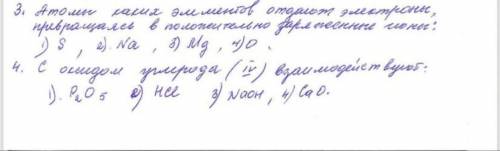 3. Атомы каких элементов отдают электроны,
превращаясь в положительно заряженные ионы:
1) S, 2) Na, 3) Mg, 4) O.
4. С оксидом углерода (IV) взаимодействуют:
1). P₂O₅ 2) HCl 3) NaOH, 4) CaO.